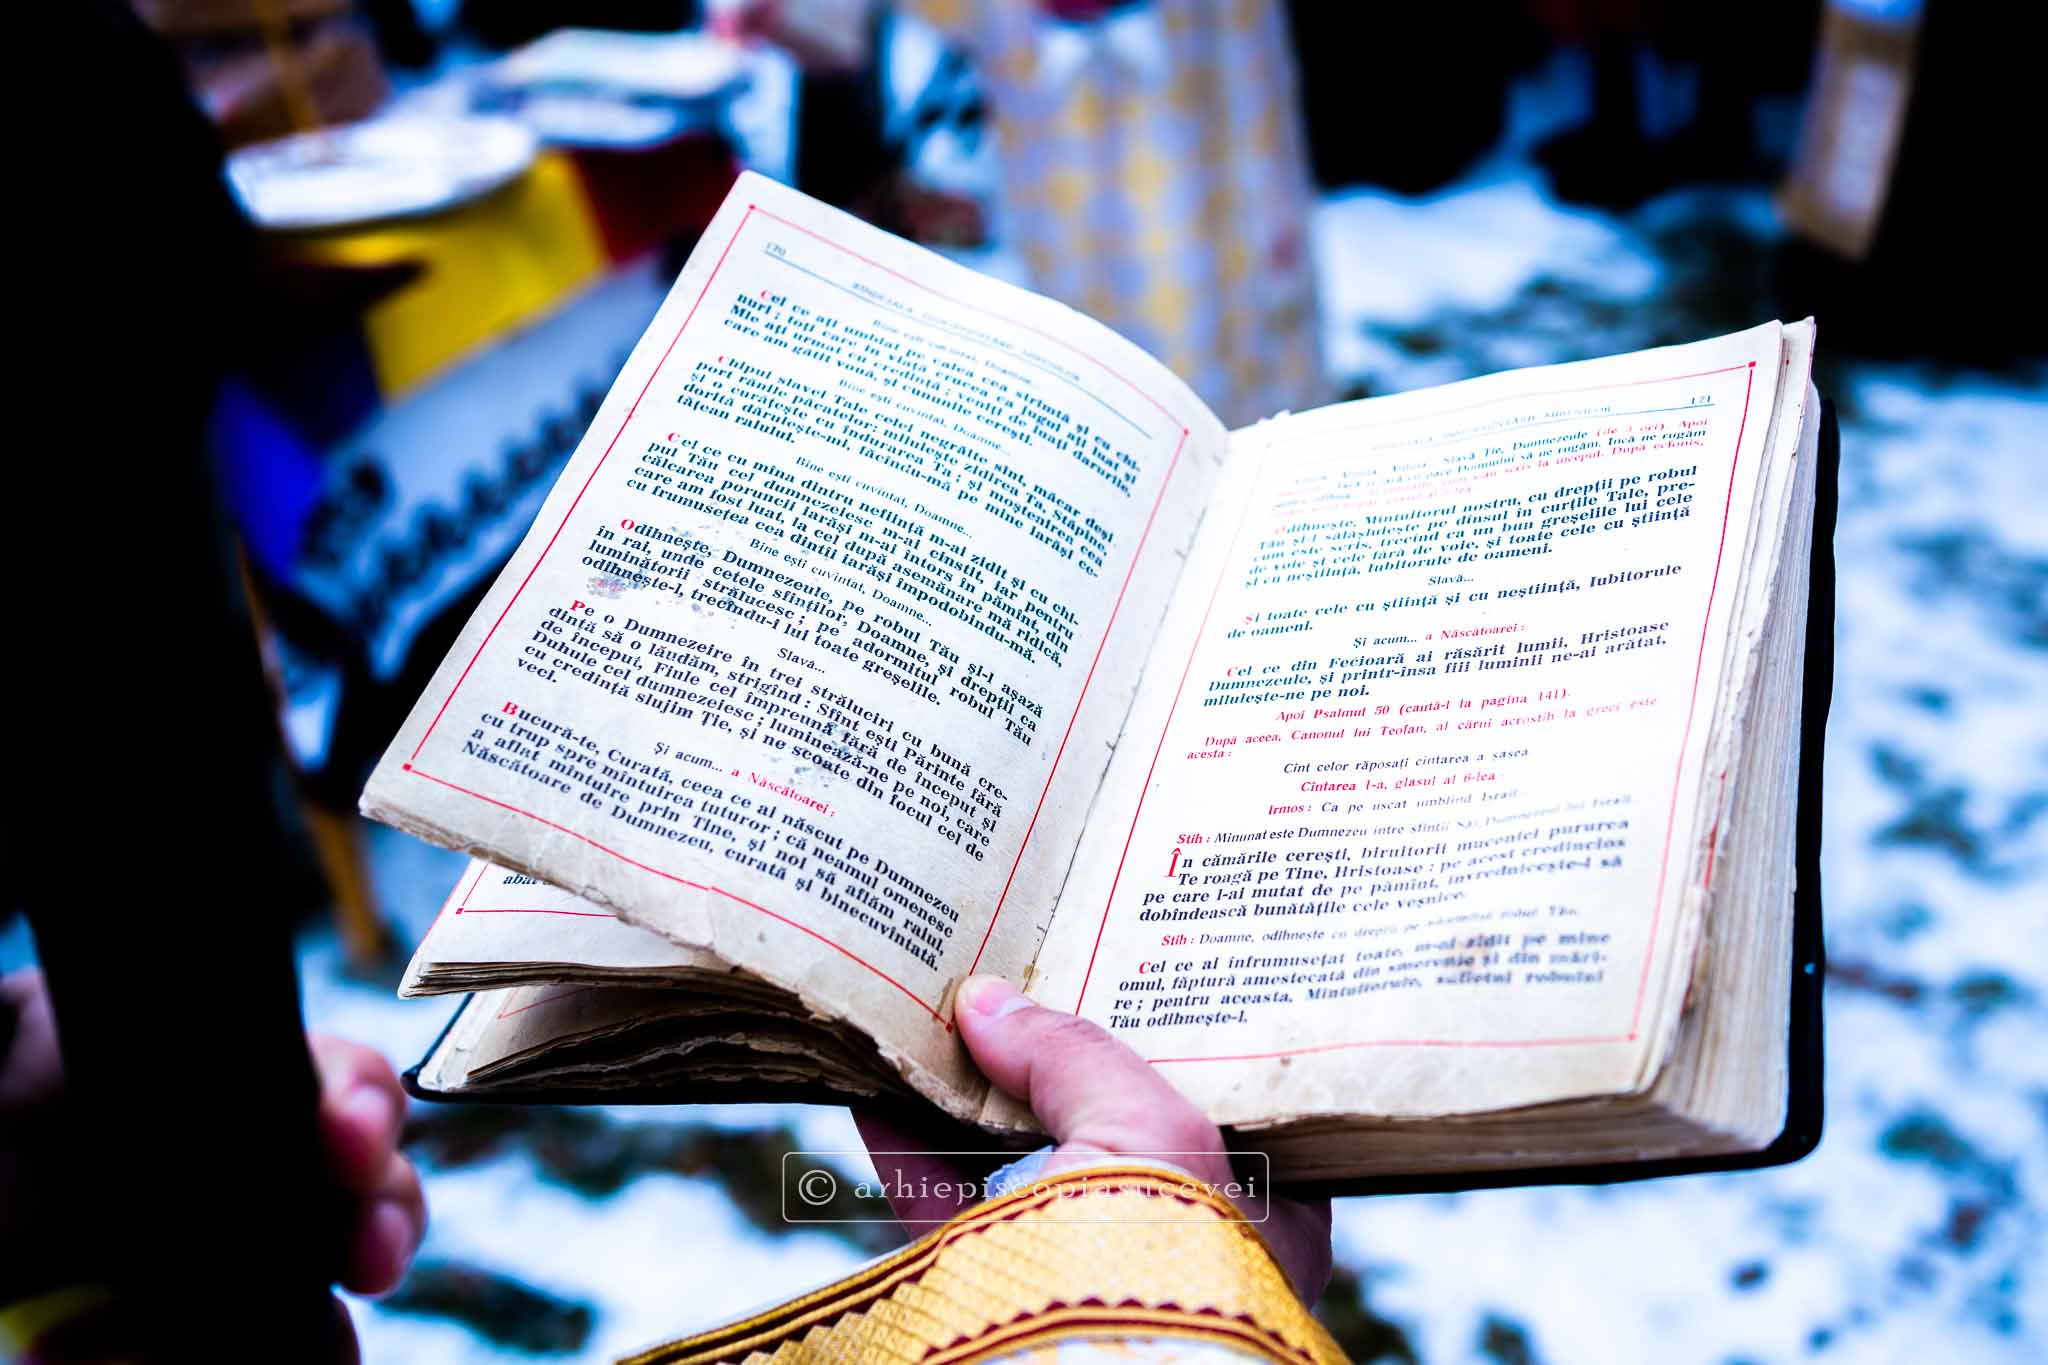 170
Cel ce ați umblat pe calea cea strîmtă și cu chi-
nuri ; toți care în viață crucea ca jugul ați luat și
Mie ați urmat cu credință ; veniți de luați darurile,
care am gătit vouă, și cununile cerești.
Bine ești cuvîntat, Doamne...
Chipul slavei Tale celei negrăite sînt, măcar deși
port rănile păcatelor; miluiește zidirea Ta, Stăpîne,
și o curățește cu îndurarea Ta ; și moștenirea cea
dorită dăruiește-mi, făcîndu-mă pe mine iarăși ce-
tățean raiului.
Bine ești cuvîntat, Doamne...
Cel ce cu mîna dintru neființă m-ai zidit și cu chi-
pul Tău cel dumnezeiesc m-ai cinstit, iar pentru
călcarea poruncii iarăși m-ai întors în pămînt, din
care am fost luat, la cel după asemănare mă ridică,
cu frumusețea cea dintîi iarăși împodobindu-mă.
Bine ești cuvîntat, Doamne...
Odihnește, Dumnezeule, pe robul Tău și-l așază
în rai, unde cetele sfinților, Doamne, și drepții ca
luminătorii strălucesc ; pe adormitul robul Tău
odihnește-l, trecîndu-i lui toate greșelile.
Slavă...
Pe o Dumnezeire în trei străluciri cu bună cre-
dință să o lăudăm, strigînd : Sfînt ești Părinte fără
de început, Fiule cel împreună fără de început și
Duhule cel dumnezeiesc ; luminează-ne pe noi, care
cu credință slujim Ție, și ne scoate din focul cel de
veci.
Și acum... a Născătoarei :
Bucură-te, Curată, ceea ce ai născut pe Dumnezeu
cu trup spre mîntuirea tuturor ; că neamul omenesc
a aflat mîntuire prin Tine, și noi să aflăm raiul,
Născătoare de Dumnezeu, curată și binecuvîntată.
171
Slavă Ție, Dumnezeule (de 3 ori). Apoi
Odihnește, Mîntuitorul nostru, cu drepții pe robul
Tău și-l sălășluiește pe dînsul în curțile Tale, pre-
cum este scris, trecînd ca un bun greșelile lui cele
de voie și cele fără de voie, și toate cele cu știință
și cu neștiință, Iubitorule de oameni.
Slavă...
Și toate cele cu știință și cu neștiință, Iubitorule
de oameni.
Și acum... a Născătoarei :
Cel ce din Fecioară ai răsărit lumii, Hristoase
Dumnezeule, și printr-însa fiii luminii ne-ai arătat,
miluiește-ne pe noi.
Apoi Psalmul 50 (caută-l la pagina 141).
După aceea, Canonul lui Teofan, al cărui acrostih la greci este
acesta :
Cînt celor răposați cîntarea a șasea
Cîntarea 1-a, glasul al 6-lea :
Irmos : Ca pe uscat umblînd Israil
Stih : Minunat este Dumnezeu între sfinții Săi, Dumnezeul lui Israil.
În cămările cerești, biruitorii mucenici pururea
Te roagă pe Tine, Hristoase : pe acest credincios
pe care l-ai mutat de pe pămînt, învrednicește-l să
dobîndească bunătățile cele veșnice.
Stih : Doamne, odihnește cu drepții pe adormitul robul Tău.
Cel ce ai înfrumusețat toate, m-ai zidit pe mine
omul, făptură amestecată din smerenie și din mări-
re ; pentru aceasta, Mîntuitorule, sufletul robului
Tău odihnește-l.
© arhiepiscopiasucevei